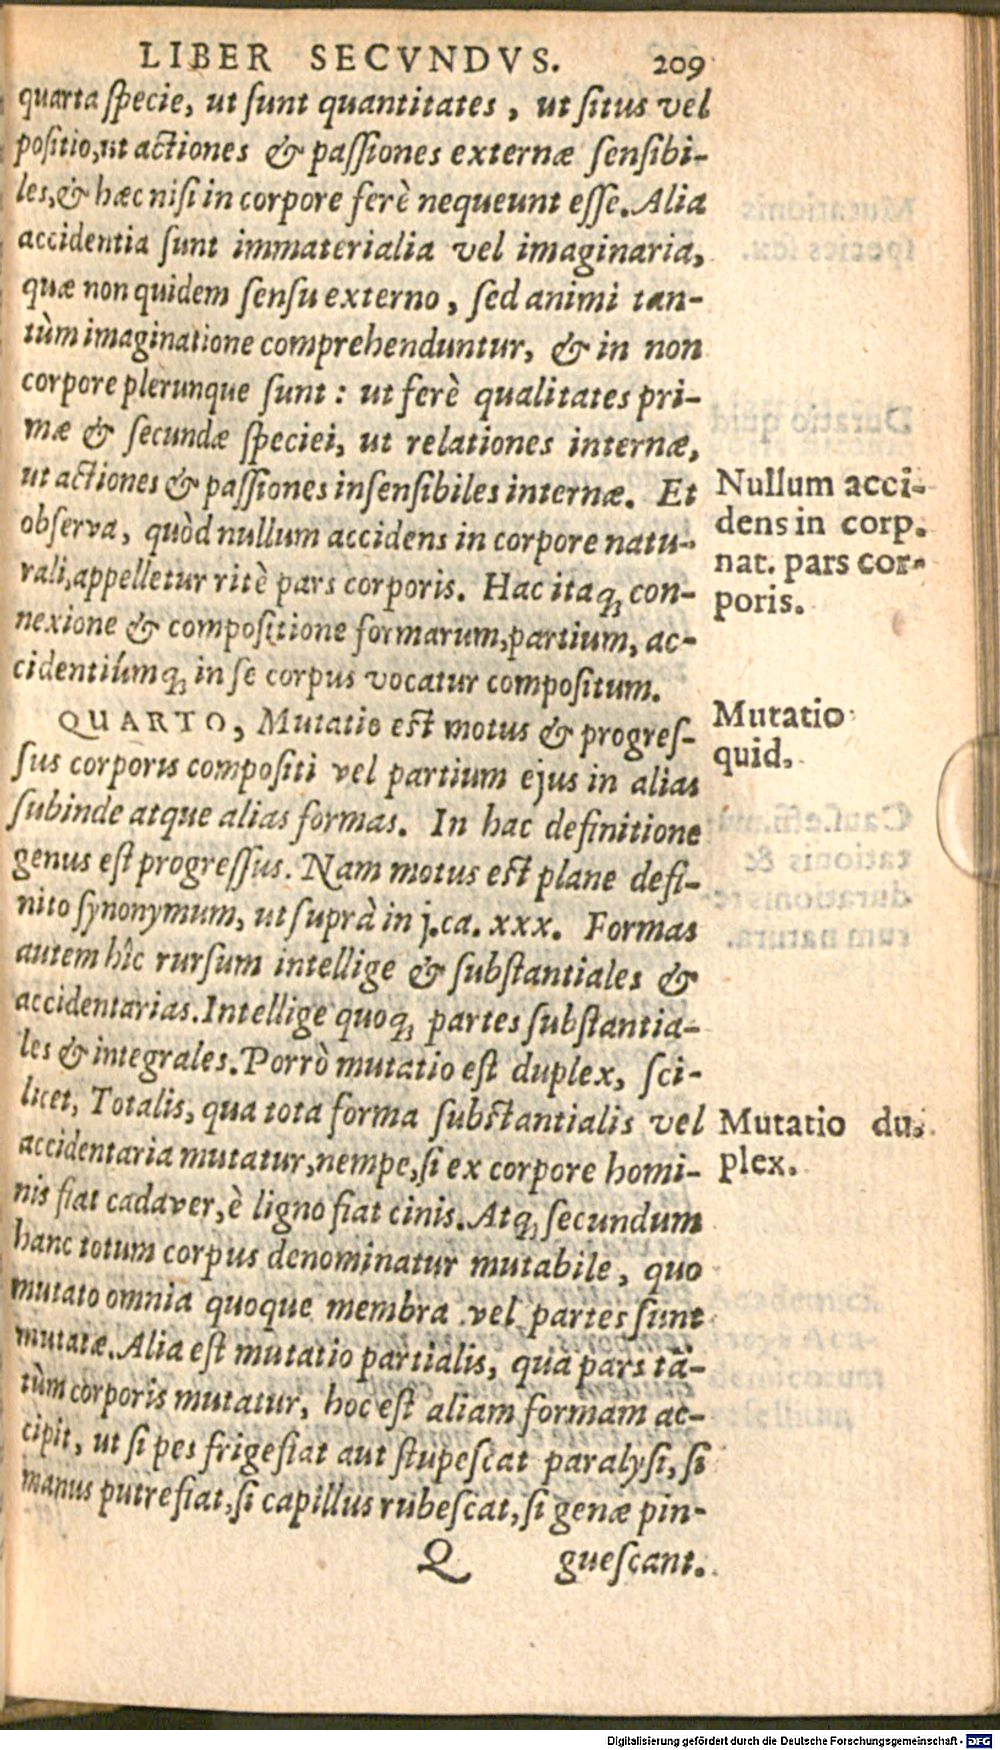 LIBER SECVNDVS. 209
quarta ſpecie, ut ſunt quantitates, ut ſitus vel
poſitio, ut actiones & paſſiones externæ ſenſibi-
les, & hæc niſi in corpore ferè nequeunt eſſe. Alia
accidentia ſunt immaterialia vel imaginaria,
quæ non quidem ſenſu externo, ſed animi tan-
tùm imaginatione comprehenduntur, & in non
corpore plerunque ſunt: ut ferè qualitates pri-
mæ & ſecundæ ſpeciei, ut relationes internæ,
ut actiones & paſſiones inſenſibiles internæ. Et
obſerva, quòd nullum accidens in corpore natu-
rali, appelletur ritè pars corporis. Hac itaq; con-
nexione & compoſitione formarum, partium, ac-
cidentiúmq; in ſe corpus vocatur compoſitum.
Nullum acci-
dens in corp.
nat. pars cor-
poris.
QUARTO, Mutatio eſt motus & progreſ-
ſus corporis compoſiti vel partium ejus in alias
ſubinde atque alias formas. In hac definitione
genus eſt progreſſus. Nam motus eſt plane defi-
nito ſynonymum, ut ſuprà in j. ca. xxx. Formas
autem hîc rurſum intellige & ſubſtantiales &
accidentarias. Intellige quoq; partes ſubſtantia-
les & integrales. Porrò mutatio eſt duplex, ſci-
licet, Totalis, qua tota forma ſubſtantialis vel
accidentaria mutatur, nempe, ſi ex corpore homi-
nis fiat cadaver, è ligno fiat cinis. Atq; ſecundum
hanc totum corpus denominatur mutabile, quo
mutato omnia quoque membra vel partes ſunt
mutatæ. Alia eſt mutatio partialis, qua pars tā-
tùm corporis mutatur, hoc eſt aliam formam ac-
cipit, ut ſi pes frigefiat aut ſtupeſcat paralyſi, ſi
manus putrefiat, ſi capillus rubeſcat, ſi genæ pin-
Mutatio
quid.
Mutatio du-
plex.
Q gueſcant.
Digitalisierung gefördert durch die Deutsche Forschungsgemeinschaft - DFG